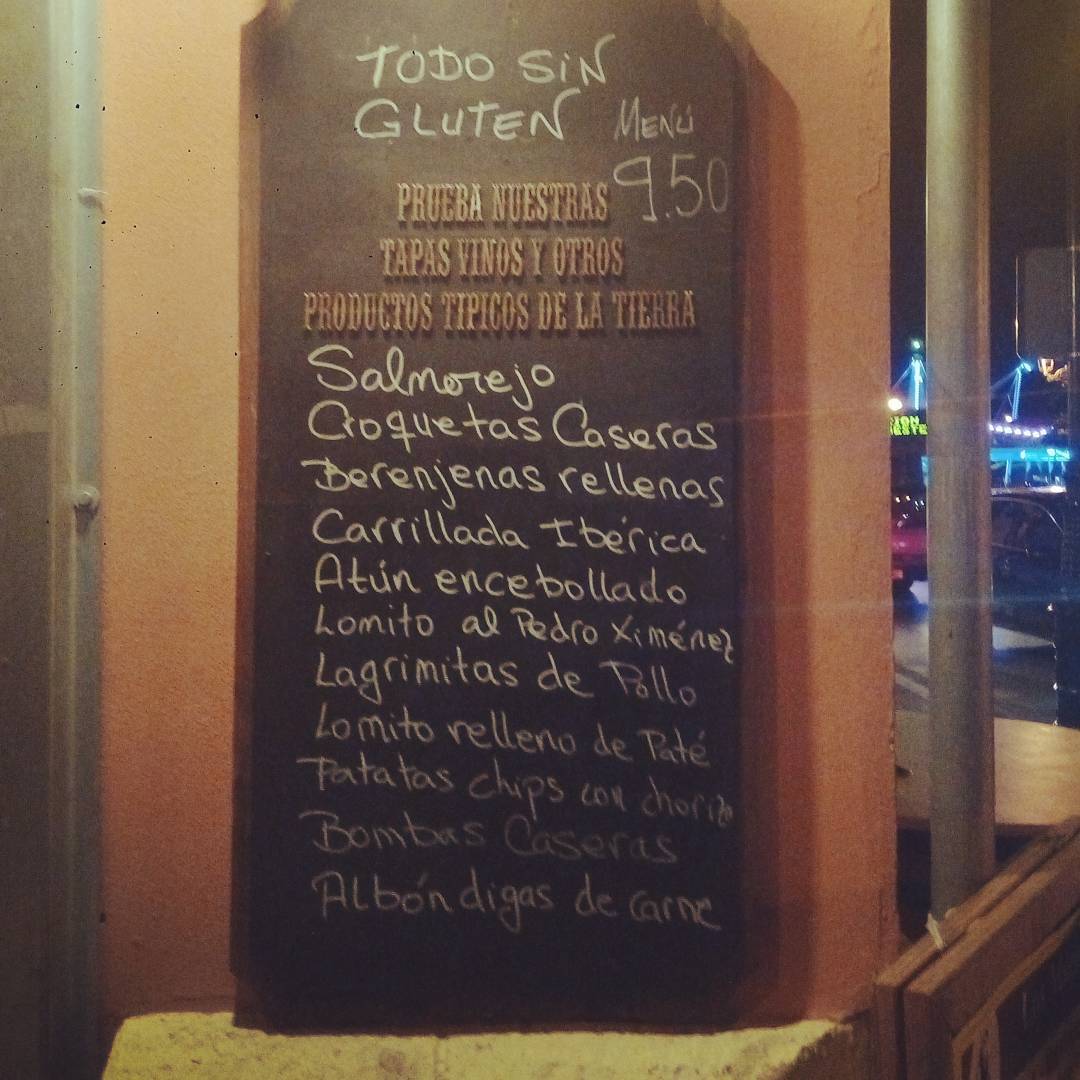 TODO SiN
GLUTEN
MENÚ
9.50
PRUEBA NUESTRAS
TAPAS VINOS Y OTROS
PRODUCTOS TIPICOS DE LA TIERRA
Salmorejo
Croquetas Caseras
Berenjenas rellenas
Carrillada Ibérica
Atún encebollado
Lomito al Pedro Ximénez
Lagrimitas de Pollo
Lomito relleno de Paté
Patatas chips con chorizo
Bombas Caseras
Albóndigas de carne